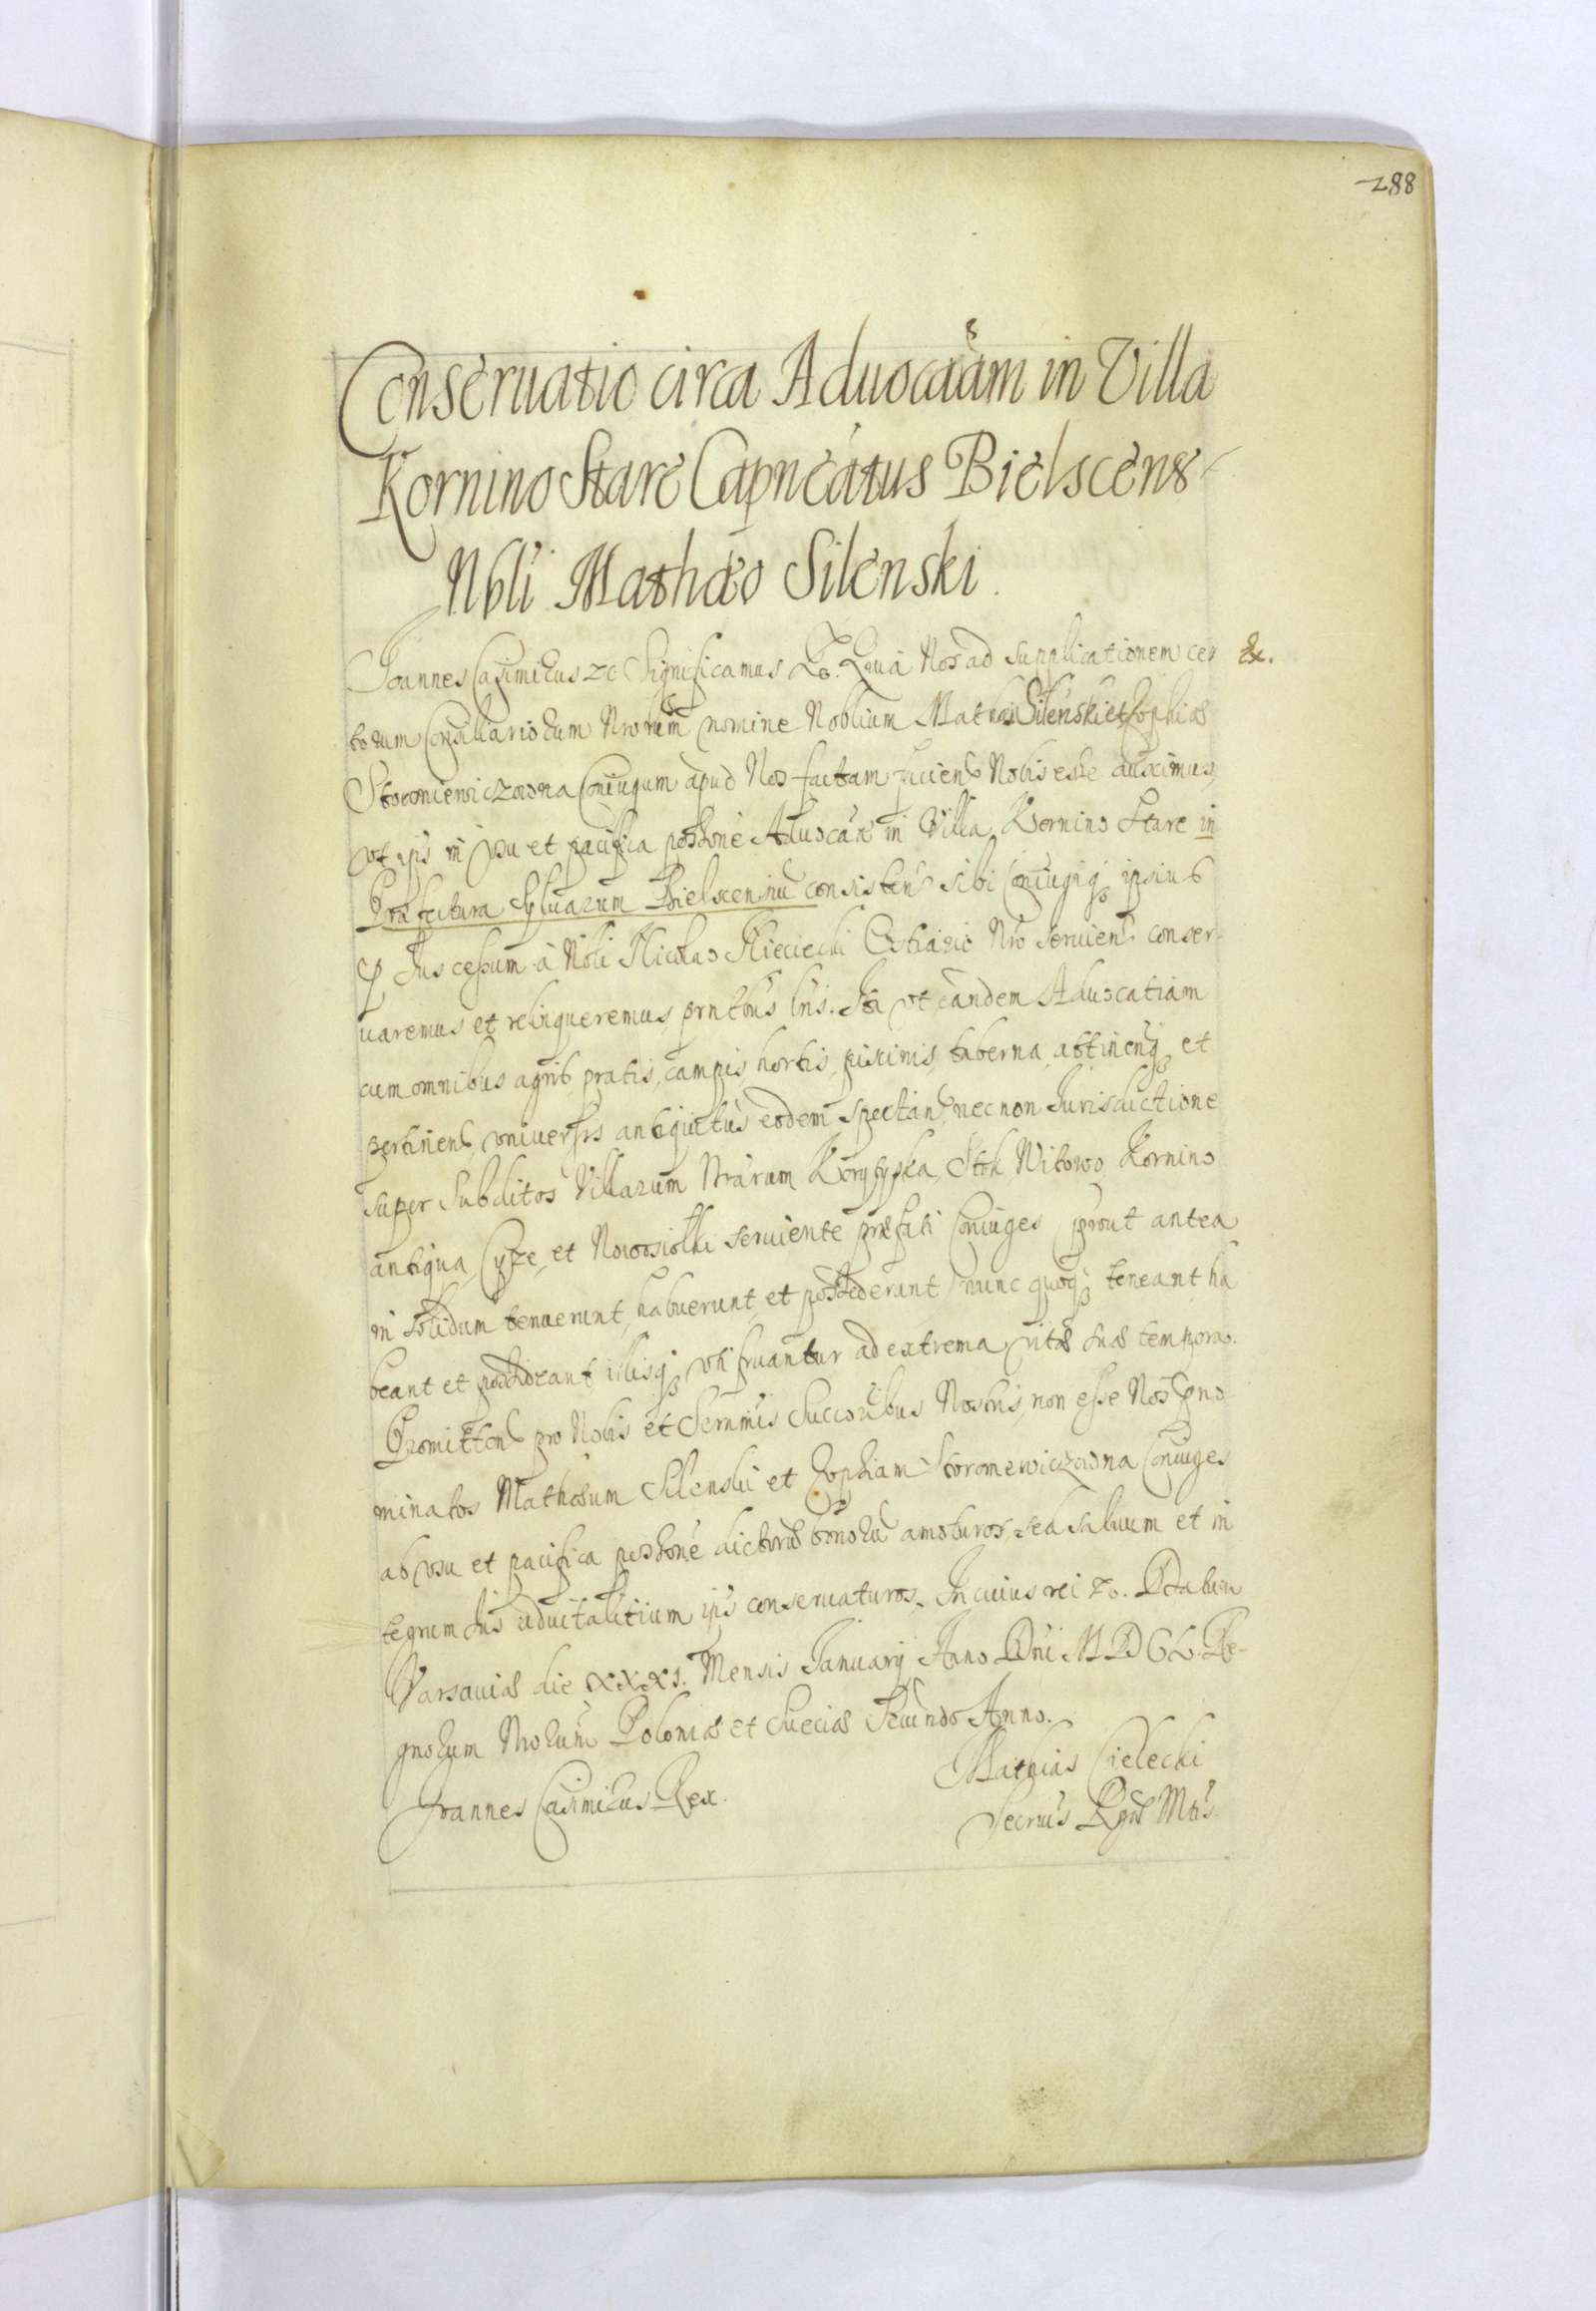 288
Conseruatio circa Aduocãam in Villa
Kornino Stare Capneatus Bielscens
Nbli Mathæo Silenski
Joannes Casimirus &c Significamus &c. Quia Nos ad supplicationem cer &.
torum Consiliariorum Nrorum nomine Nobilium Mathæi Silenski et Zophiæ
Storomiewiczowna Coniugum apud Nos factam faciend Nobis esse duximus,
vt ips in vsu et pacifica possone Aduocãæ in Villa Kornino Stare in
Præfectura Syluarum Bielscensiu consisten sibi Coniugiq ipsius
p Jus cessum à Nbli Nicolao Kieciecki Ostiario Nro seruien conser
uaremus et relinqueremus prntbus lris. Ita vt eandem Aduocatiam
cum omnibus agris, pratis, campis hortis, piscinis, taberna, attinenq et
pertinen vniuersis antiquitus eodem spectan, necnon Jurisdictione
super Subditos Villarum Nrarum Koryfyska, Stok, Witowo Kornino
antiqua, Cyze, et Nowosiolki seruiente præfati Coniuges prout antea
in solidum tenuerunt, habuerunt, et possederunt nunc quoq teneant, ha
beant et possideant illisq vti fruantur ad extrema vitæ suæ tempora.
Promitten pro Nobis et Sernmis Succoribus Nostris, non esse Nos pno
minatos Mathæum Silenski et Zophiam Storomewiczowna Coniuges
ab vsu et pacifica possone dictoru bonoru amoturos, sed saluum et in
tegrum Jus aduitalitium ips conseruaturos. In cuius rei &c. Datum
Varsauiæ die XXXI. Mensis January Anno Dni MDCL. Re-
gnorum Nrorum Poloniæ et Sueciæ Secundo Anno.
Joannes Casimirus Rex. Mathias Cielecki
Secrius Rgæ Mtis.